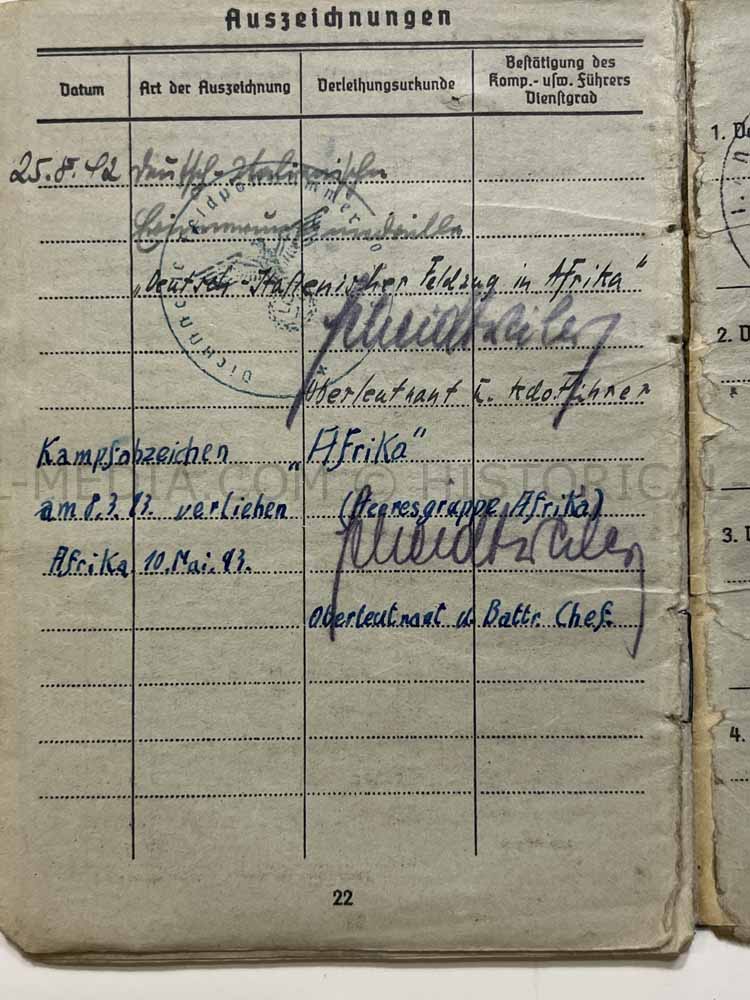 Auszeichnungen
Datum
Art der Auszeichnung
Verleihungsurkunde
Bestätigung des
Komp.- usw. Führers
Dienstgrad
25.8.42 Deutsch-Italienische
Erinnerungsmedaille
„Deutsch-Italienischer Feldzug in Afrika"
Oberleutnant u. Kdoführer
Kampfabzeichen „Afrika"
am 8.3.43. verliehen (Heeresgruppe Afrika)
Afrika 10. Mai. 43.
Oberleutnant u. Battr. Chef.
22
1.
2.
3.
4.
L-MEDIA.COM © HISTORICAL-